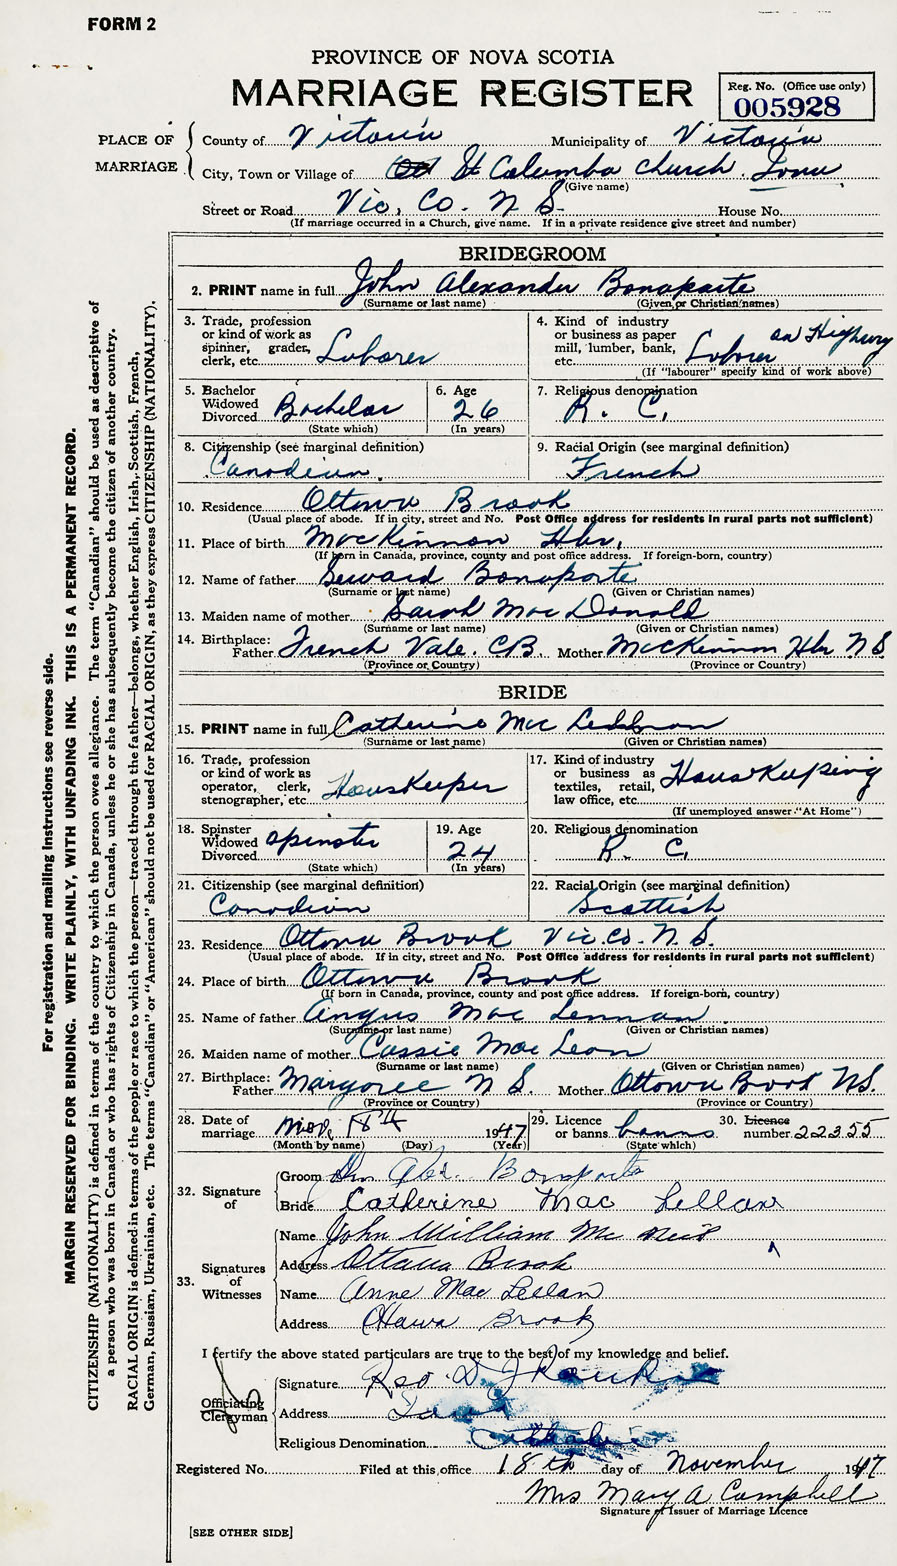 FORM 2
PROVINCE OF NOVA SCOTIA
MARRIAGE REGISTER
Reg. No. (Office use only)
005928
PLACE OF MARRIAGE
County of Victoria Municipality of Victoria
City, Town or Village of St Columba Church Iona
(Give name)
Street or Road Vic, Co. N S. House No.
(If marriage occurred in a Church, give name. If in a private residence give street and number)
BRIDEGROOM
2. PRINT name in full John Alexander Bonaparte
(Surname or last name) (Given or Christian names)
3. Trade, profession or kind of work as spinner, grader, clerk, etc. Laborer
4. Kind of industry or business as paper mill, lumber, bank, etc. Laborer on Highway
(If "labourer" specify kind of work above)
5. Bachelor Widowed Divorced Bachelor
(State which)
6. Age 26
(In years)
7. Religious denomination R. C.
8. Citizenship (see marginal definition) Canadian
9. Racial Origin (see marginal definition) French
10. Residence Ottawa Brook
(Usual place of abode. If in city, street and No. Post Office address for residents in rural parts not sufficient)
11. Place of birth MacKinnon Hbr.
(If born in Canada, province, county and post office address. If foreign-born, country)
12. Name of father Bonaparte
(Surname or last name) (Given or Christian names)
13. Maiden name of mother Sarah Mac Donald
(Surname or last name) (Given or Christian names)
14. Birthplace: Father French Vale. C.B. Mother MacKinnon Hbr N S
(Province or Country) (Province or Country)
BRIDE
15. PRINT name in full Catherine Mac
(Surname or last name) (Given or Christian names)
16. Trade, profession or kind of work as operator, clerk, stenographer, etc. HousKeeper
17. Kind of industry or business as textiles, retail, law office, etc. HousKeeping
(If unemployed answer "At Home")
18. Spinster Widowed Divorced spinster
(State which)
19. Age 24
(In years)
20. Religious denomination R. C.
21. Citizenship (see marginal definition) Canadian
22. Racial Origin (see marginal definition) Scottish
23. Residence Ottawa Brook Vic. Co. N. S.
(Usual place of abode. If in city, street and No. Post Office address for residents in rural parts not sufficient)
24. Place of birth Ottawa Brook
(If born in Canada, province, county and post office address. If foreign-born, country)
25. Name of father Angus Mac Lennan
(Surname or last name) (Given or Christian names)
26. Maiden name of mother Cassie Mac Lean
(Surname or last name) (Given or Christian names)
27. Birthplace: Father Margaree N S. Mother Ottawa Brook NS.
(Province or Country) (Province or Country)
28. Date of marriage Nov. 18th 1947
(Month by name) (Day) (Year)
29. Licence or banns banns
(State which)
30. Licence number 22355
32. Signature of
Groom John Alex. Bonaparte
Bride Catherine Mac Lellan
33. Signatures of Witnesses
Name John William Mc Neil
Address Ottawa Brook
Name Anne Mac Lellan
Address Ottawa Brook
I certify the above stated particulars are true to the best of my knowledge and belief.
Officiating Clergyman
Signature Rev. D J
Address Iona
Religious Denomination
Registered No. Filed at this office 18 th day of November 1947
Mrs Mary A Campbell
Signature of Issuer of Marriage Licence
[SEE OTHER SIDE]
For registration and mailing instructions see reverse side.
MARGIN RESERVED FOR BINDING. WRITE PLAINLY, WITH UNFADING INK. THIS IS A PERMANENT RECORD.
CITIZENSHIP (NATIONALITY) is defined in terms of the country to which the person owes allegiance. The term "Canadian" should be used as descriptive of
a person who was born in Canada or who has rights of Citizenship in Canada, unless he or she has subsequently become the citizen of another country.
RACIAL ORIGIN is defined in terms of the people or race to which the person—traced through the father—belongs, whether English, Irish, Scottish, French,
German, Russian, Ukrainian, etc. The terms "Canadian" or "American" should not be used for RACIAL ORIGIN, as they express CITIZENSHIP (NATIONALITY).